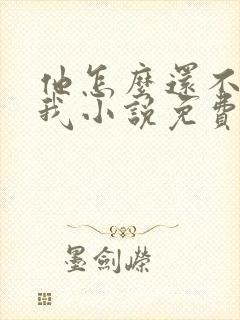 他怎麼還不
我小說免費
墨劍嶸